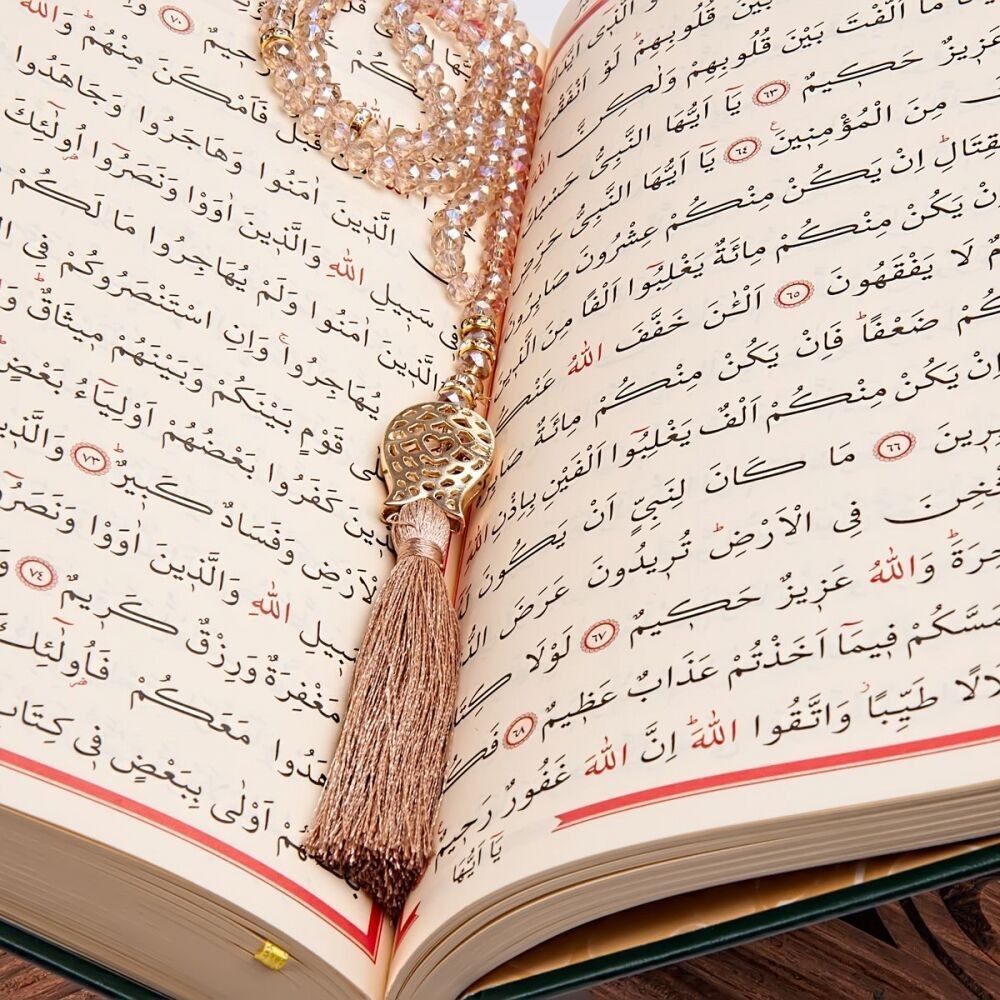 بَيْنَ قُلُوبِهِمْ لَوْ اَنْفَقْتَ
مَا اَلَّفْتَ بَيْنَ قُلُوبِهِمْ وَلٰكِنَّ
عَزِيزٌ حَكِيمٌ ٦٣ يَٓا اَيُّهَا النَّبِيُّ حَسْبُكَ
مِنَ الْمُؤْمِنِينَ ٦٤ يَٓا اَيُّهَا النَّبِيُّ حَرِّضِ
قِتَالِ اِنْ يَكُنْ مِنْكُمْ عِشْرُونَ صَابِرُونَ
نْ يَكُنْ مِنْكُمْ مِائَةٌ يَغْلِبُٓوا اَلْفًا مِنَ الَّذِينَ
مٌ لَا يَفْقَهُونَ ٦٥ اَلْـٰٔنَ خَفَّفَ اللّٰهُ عَنْكُمْ
كُمْ ضَعْفًا فَاِنْ يَكُنْ مِنْكُمْ مِائَةٌ صَابِ
اِنْ يَكُنْ مِنْكُمْ اَلْفٌ يَغْلِبُٓوا اَلْفَيْنِ بِاِذْنِ اللّٰهِ
بِرِينَ ٦٦ مَا كَانَ لِنَبِيٍّ اَنْ يَكُونَ
ثْخِنَ فِي الْاَرْضِ تُرِيدُونَ عَرَضَ الدُّ
خِرَةَ وَاللّٰهُ عَزِيزٌ حَكِيمٌ ٦٧ لَوْلَا كِتَا
مَسَّكُمْ فِيمَٓا اَخَذْتُمْ عَذَابٌ عَظِيمٌ ٦٨ فَكُ
لَالًا طَيِّبًا وَاتَّقُوا اللّٰهَ اِنَّ اللّٰهَ غَفُورٌ رَحِيمٌ
يَٓا اَيُّهَا
رَحِيمٌ ٧٠ وَاِنْ
قَبْلُ فَاَمْكَنَ مِنْهُمْ وَاللّٰهُ
الَّذِينَ اٰمَنُوا وَهَاجَرُوا وَجَاهَدُوا
سَبِيلِ اللّٰهِ وَالَّذِينَ اٰوَوْا وَنَصَرُٓوا اُولٰٓئِكَ
الَّذِينَ اٰمَنُوا وَلَمْ يُهَاجِرُوا مَا لَكُمْ
يُهَاجِرُوا وَاِنِ اسْتَنْصَرُوكُمْ فِي ال
لٰى قَوْمٍ بَيْنَكُمْ وَبَيْنَهُمْ مِيثَاقٌ وَا
ذِينَ كَفَرُوا بَعْضُهُمْ اَوْلِيَٓاءُ بَعْضٍ
الْاَرْضِ وَفَسَادٌ كَبِيرٌ ٧٣ وَالَّذِي
بِيلِ اللّٰهِ وَالَّذِينَ اٰوَوْا وَنَصَرُ
مَغْفِرَةٌ وَرِزْقٌ كَرِيمٌ ٧٤ وَ
هَدُوا مَعَكُمْ فَاُولٰٓئِكَ
هُمْ اَوْلٰى بِبَعْضٍ فِي كِتَابِ